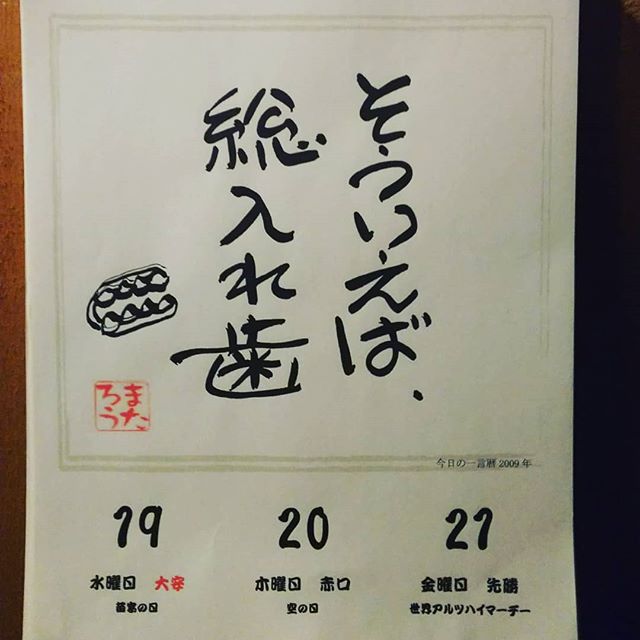 そういえば、
総入れ歯
また
ろう
今日の一言暦 2009 年
19
水曜日 大安
苗字の日
20
木曜日 赤口
空の日
21
金曜日 先勝
世界アルツハイマーデー